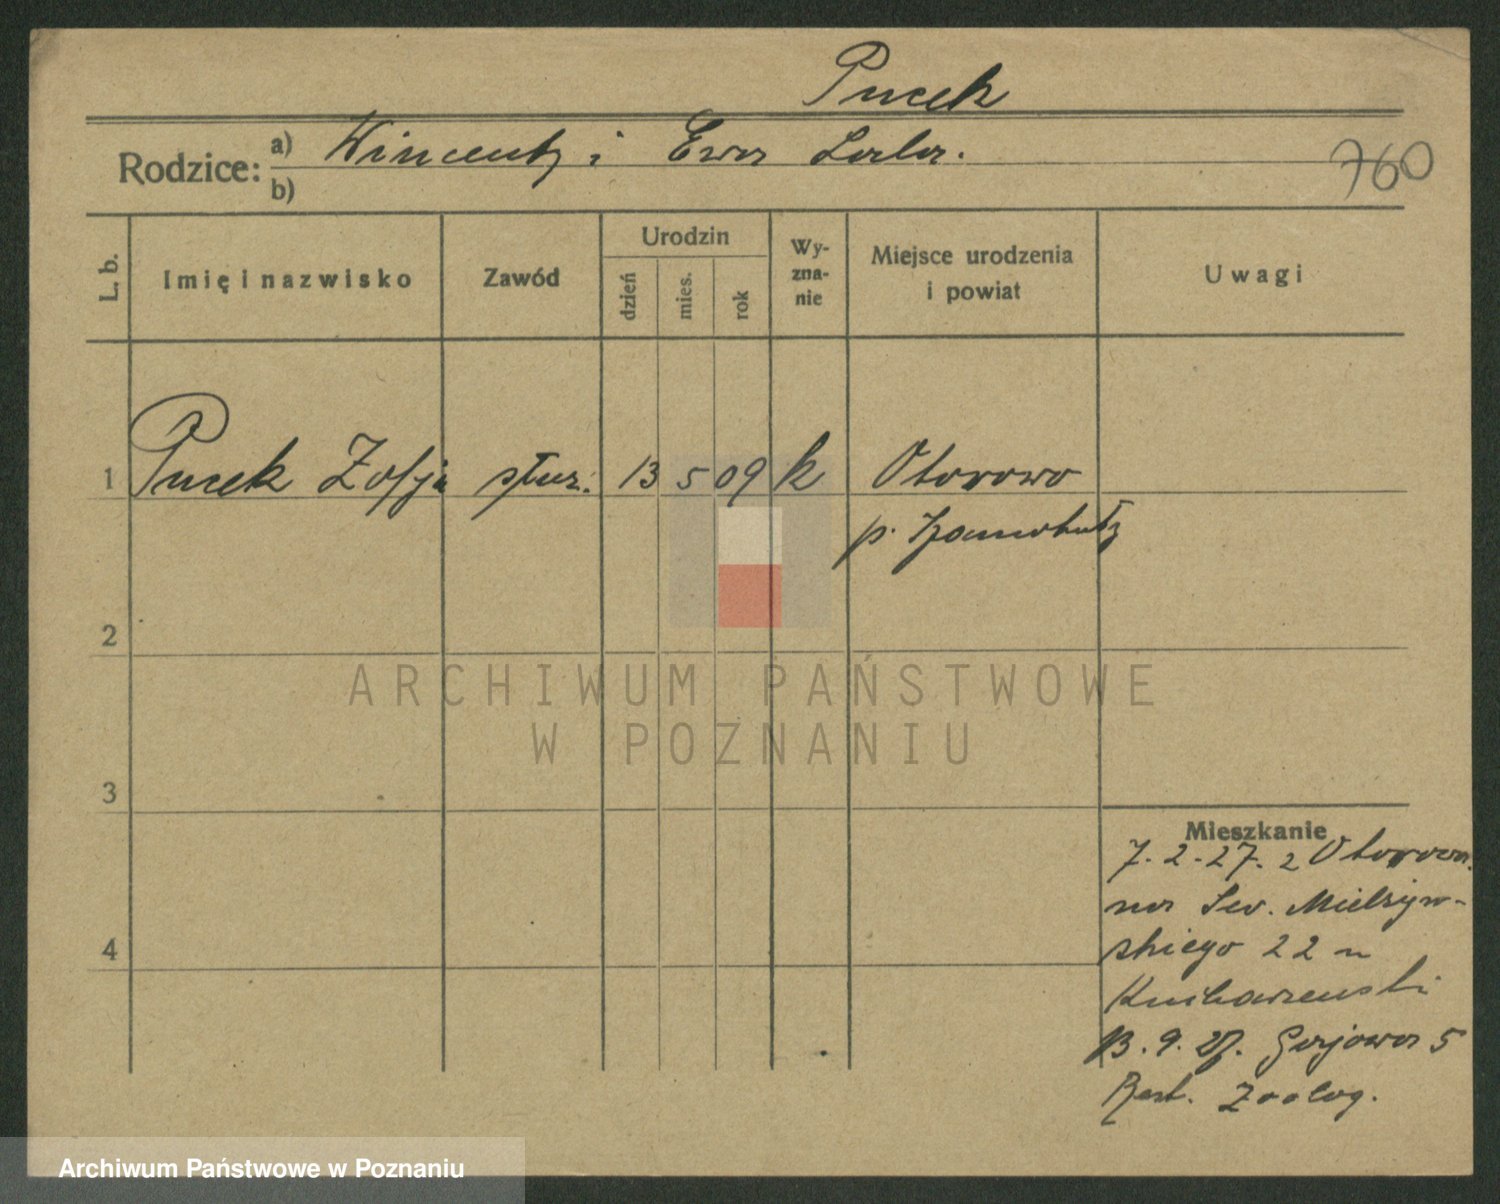 Pucek
Rodzice: a) Wincenty i Ewa
b)
760
L. b.
Imię i nazwisko
Zawód
Urodzin
dzień
mies.
rok
Wy-
zna-
nie
Miejsce urodzenia
i powiat
Uwagi
1 Pucek Zofja służ. 13 5 09 k Otorowo
p. Szamotuły
2
3
4
Mieszkanie
7. 2. 27. z Otorowa
na Sew. Mielżyń-
skiego 22 u
13. 9. 27. Gajowa 5
Rest. Zoolog.
ARCHIWUM PAŃSTWOWE
W POZNANIU
Archiwum Państwowe w Poznaniu